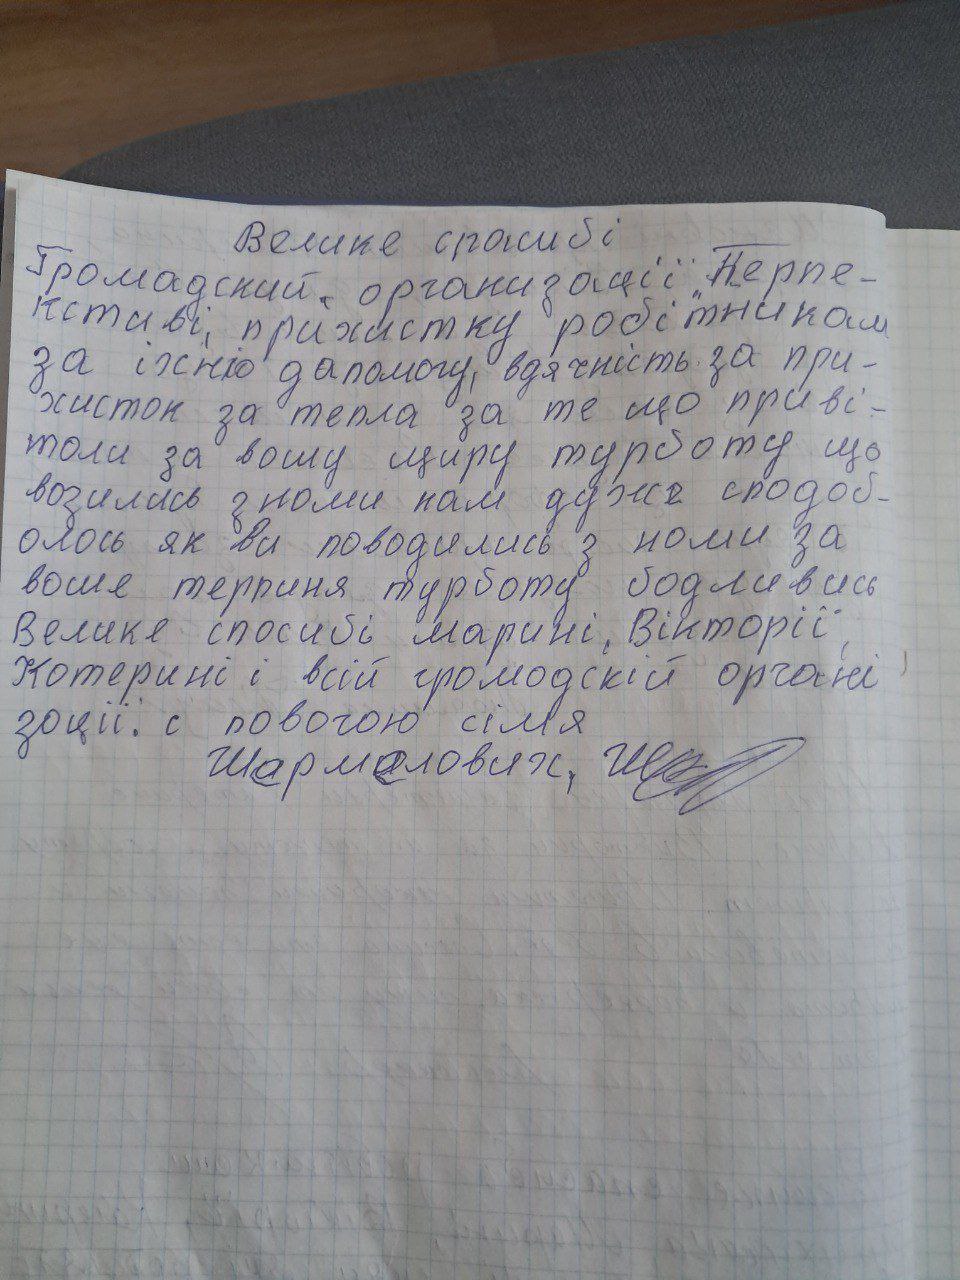 Велике спасибі
Громадский, організації "Перпе-
кстиві, прихистку робітникам
за їхню дапомогу, вдячність за при-
хисток за тепла за те що приві-
толи за вошу щиру турботу що
возились з номи нам дуже сподоб-
олось як Ви поводились з номи за
воше терпиня турботу бодливись
Велике спосибі марині, Вікторії,
Котерині і всій громодскій органі
зоції. с повогою сімя
Шармалових,